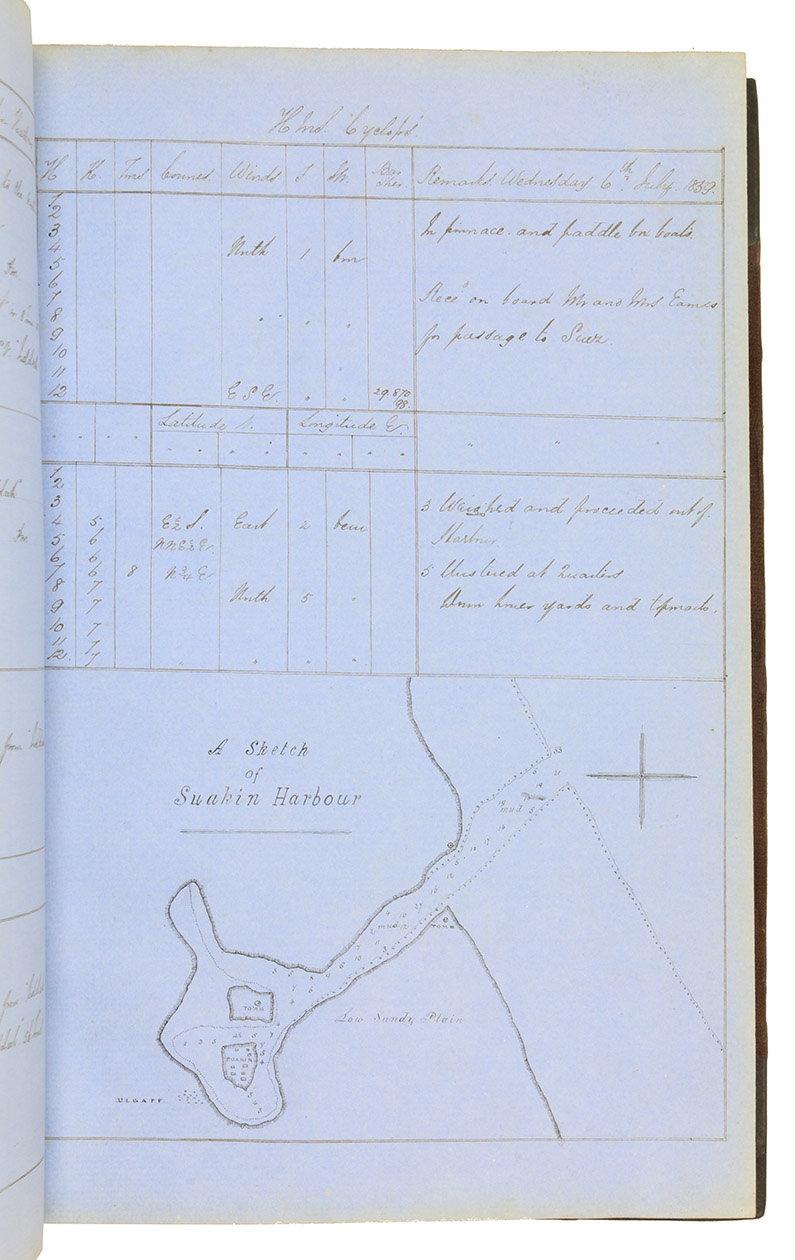 HMS. "Cyclops"
H. K. Tms Courses Winds F W. Bar Ther. Remarks. Wednesday 6th July. 1859.
1
2
3 In pinnace and paddle box boats.
4 North 1 bm
5
6
7 Rece'd on board Mr and Mrs Eames
8 " " " "
9 for passage to Suez.
10
11 "
12 E S E " 29.870
98.
Latitude N. Longitude E.
" " " " " " " " " " " "
1
2
3 3 Weighed and proceeded out of
4 5 E½S. East 2 bcm
5 6 NNE½E. Harbour
6 6
7 6 8 N¾E 5 Mustered at Quarters
8 7 North 5 "
9 7 Down lower yards and topmasts.
10 7
11 7
12. 7 " " " "
A Sketch
of
Suakin Harbour
33
5 11
19
mud 5
14
7
10
5
12
18
mud
TOMB
5 5 8 4 6 10
TOMB
Low Sandy Plain
2 3 5 4½ 5 7
SUAKIN
ULGAFF